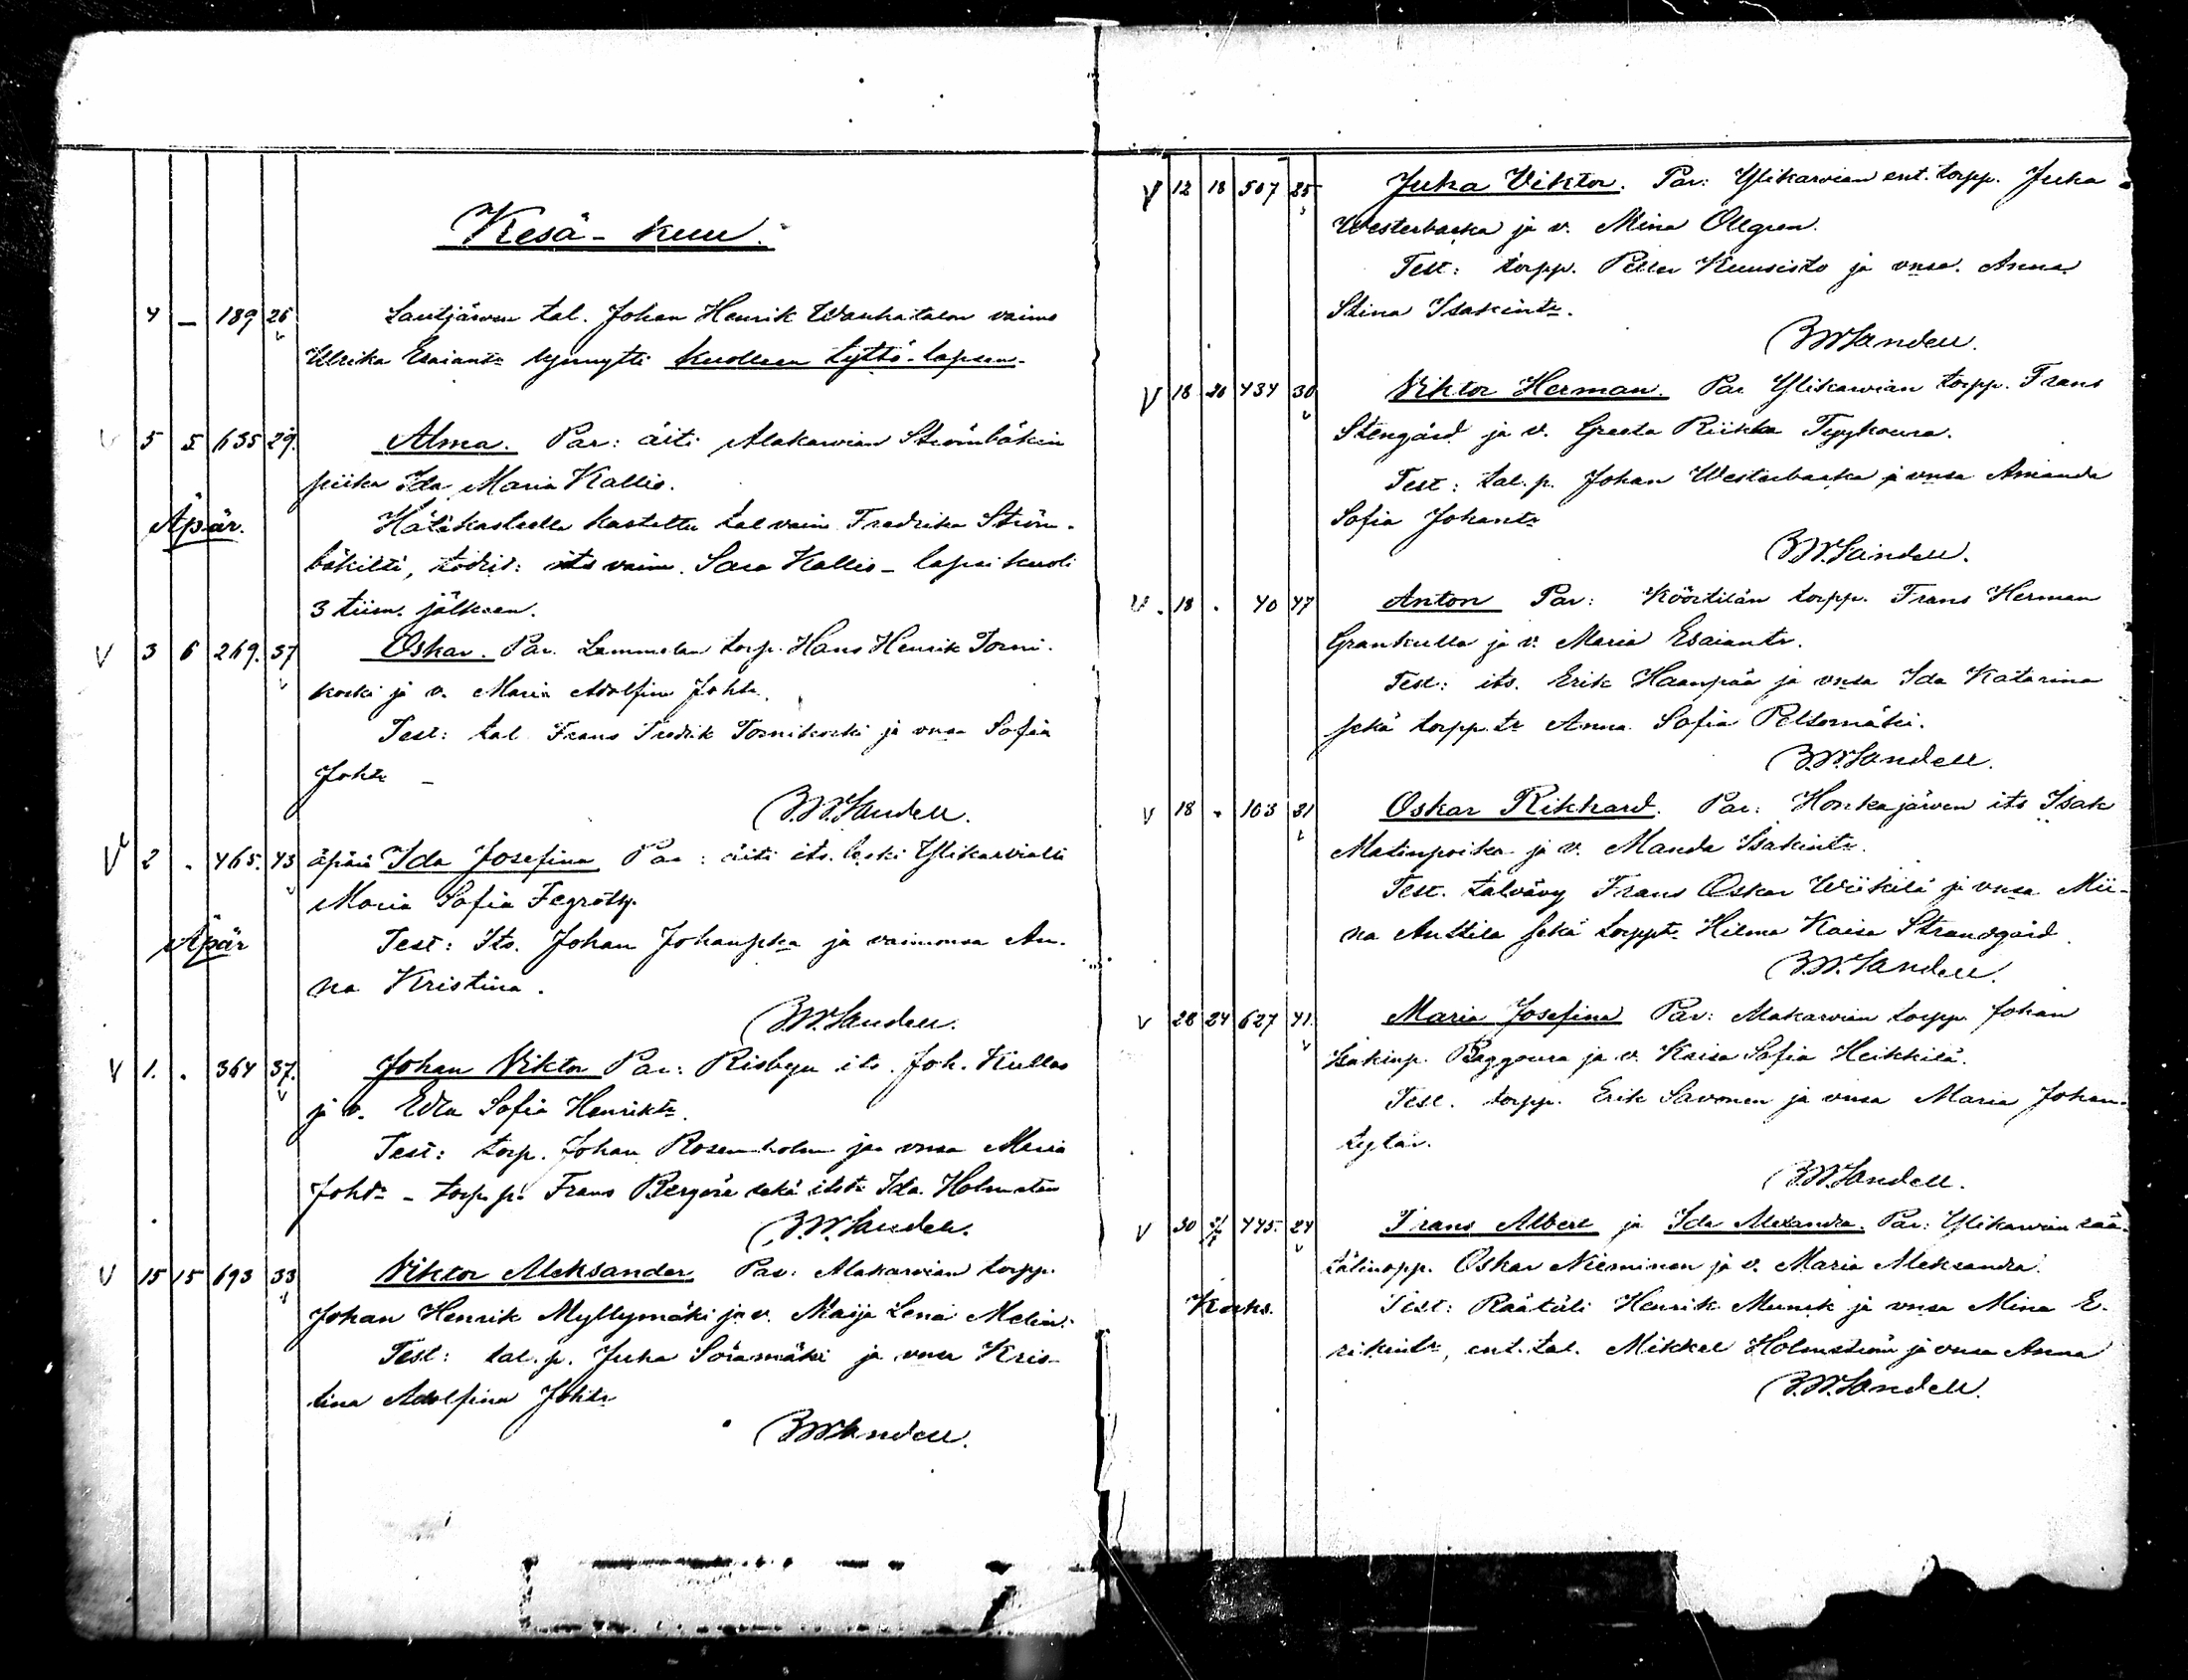 Kesä-kuu.
4 — 189 26 Lautjärven tal. Johan Henrik Wanhatalon vaimo
Ulrika Esaiantr synnytti kuolleen tyttö-lapsen.
V 5 5 635 29. Alma. Par: äiti Alakarvian Strömbäkin
piika Ida Maria Kallio.
Äpär. Hätäkasteella kastettu tal vaim Fredrika Ström-
bäkiltä, todist: its vaim. Sara Kallio – lapsi kuoli
3 tiim. jälkeen.
V 3 6 269. 37 Oskar. Par. Lammelan torp. Hans Henrik Torni-
koski ja v. Maria Adolfina Johtr.
Test: tal Frans Fredrik Tornikoski ja vnsa Sofia
Johtr –
B.W.Sandell.
V 2 . 465. 43 äpärä Ida Josefina Par: äiti its. leski Ylikarvialta
Maria Sofia
Äpär Test: Its. Johan Johanpka ja vaimonsa An-
na Kristina.
B.W.Sandell.
V 1. . 364 37. Johan Viktor Par: Risbyn its. Joh. Kullas
ja v. Edla Sofia Henriktr.
Test: torp. Johan Rosenholm ja vnsa Maria
Johtr – torp. p. Frans sekä itstr Ida
B.W.Sandell.
V 15 15 693 33 Viktor Aleksander Par: Alakarvian torpp.
Johan Henrik Myllymäki ja v. Maija Lena Melin.
Test: tal. p. Juha Söramäki ja vnsa Kris-
tina Adolfina Johtr
B.W.Sandell.
V 12 18 507 25 Juha Viktor. Par: Ylikarvian ent. torpp. Juha
Westerbacka ja v. Mina Ollgren.
Test: torpp. Petter Kuusisto ja vnsa. Anna
Stina Isakintr.
B.W.Sandell.
V 18 20 434 30 Viktor Herman. Par Ylikarvian torpp. Frans
Stengård ja v. Greeta Riikka
Test: tal. p. Johan Westerbacka ja vnsa Amanda
Sofia Johantr
B.W.Sandell.
V. 18 . 40 47 Anton Par: Köörtilän torpp. Frans Herman
Grankulla ja v. Maria Esaiantr.
Test: its. Erik Haanpää ja vnsa Ida Katarina
sekä torpp. tr Anna Sofia Peltomäki.
B.W.Sandell.
V 18 . 103 31 Oskar Rikhard. Par: Honkajärven its Isak
Matinpoika ja v. Manda Isakintr.
Test. talvävy Frans Oskar Wiikilä ja vnsa Mii-
na Anttila sekä torpptr Hilma Kaisa Strandgård.
B.W.Sandell.
V 28 24 627 41 Maria Josefina Par: Alakarvian torpp Johan
Isakinp. ja v. Kaisa Sofia Heikkilä.
Test. torpp. Erik Savonen ja vnsa Maria Johan-
tytär.
B.W.Sandell.
V 30 445. 24 Frans Albert ja Ida Alexandra. Par: Ylikarvian rää-
tälinopp. Oskar Nieminen ja v. Maria Aleksandra.
Kaks. Test: Räätäli Henrik Munck ja vnsa Mina E-
rikintr, ent. tal. Mikkel Holmström ja vnsa Anna
B.W.Sandell.